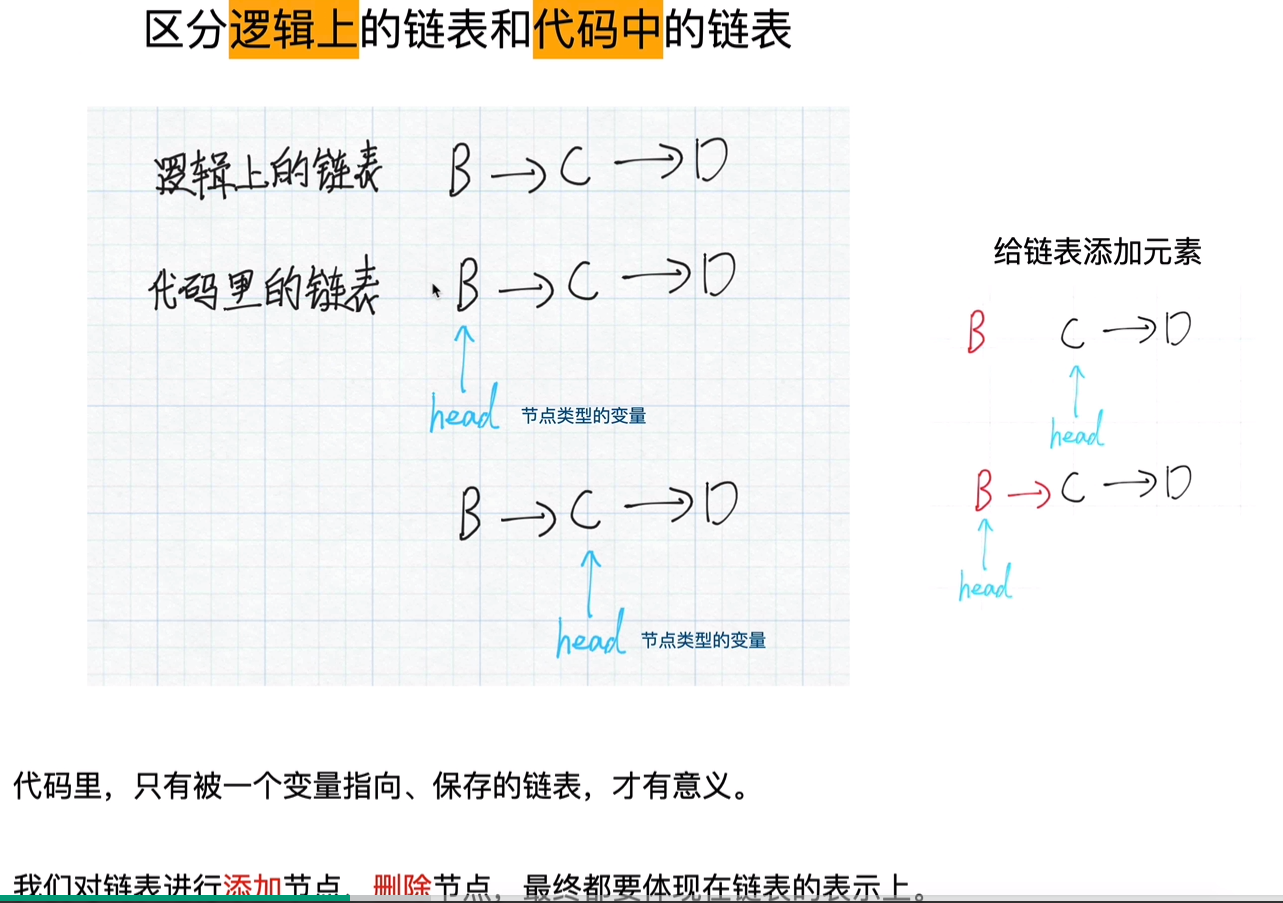 区分逻辑上的链表和代码中的链表
逻辑上的链表 B → C → D
代码里的链表 B → C → D
head 节点类型的变量
B → C → D
head 节点类型的变量
给链表添加元素
B C → D
head
B → C → D
head
代码里，只有被一个变量指向、保存的链表，才有意义。
我们对链表进行添加节点、删除节点，最终都要体现在链表的表示上。